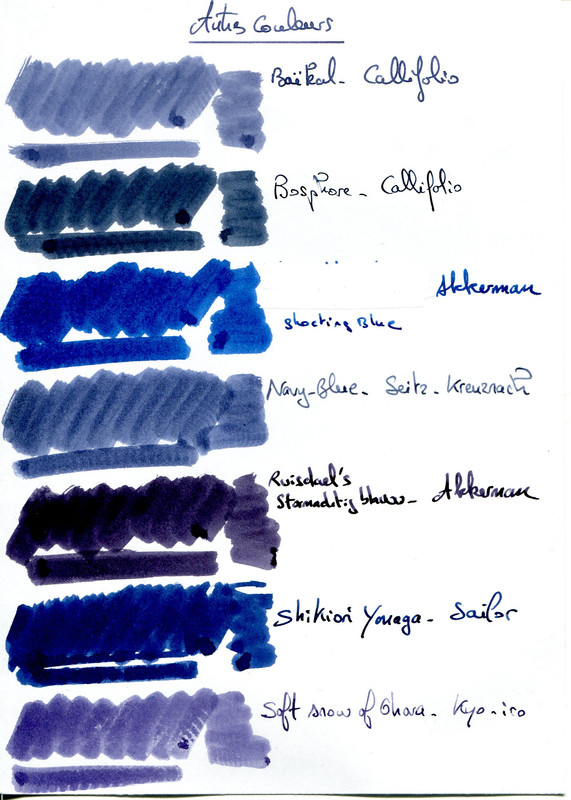 Autres Couleurs
Baïkal - Callifolio
Bosphore - Callifolio
Akkerman
Shocking Blue
Navy-Blue - Seitz-Kreuznach
Ruisdael's
Akkerman
Shikiori Yonaga - Sailor
Soft snow of Ohara - Kyo-iro